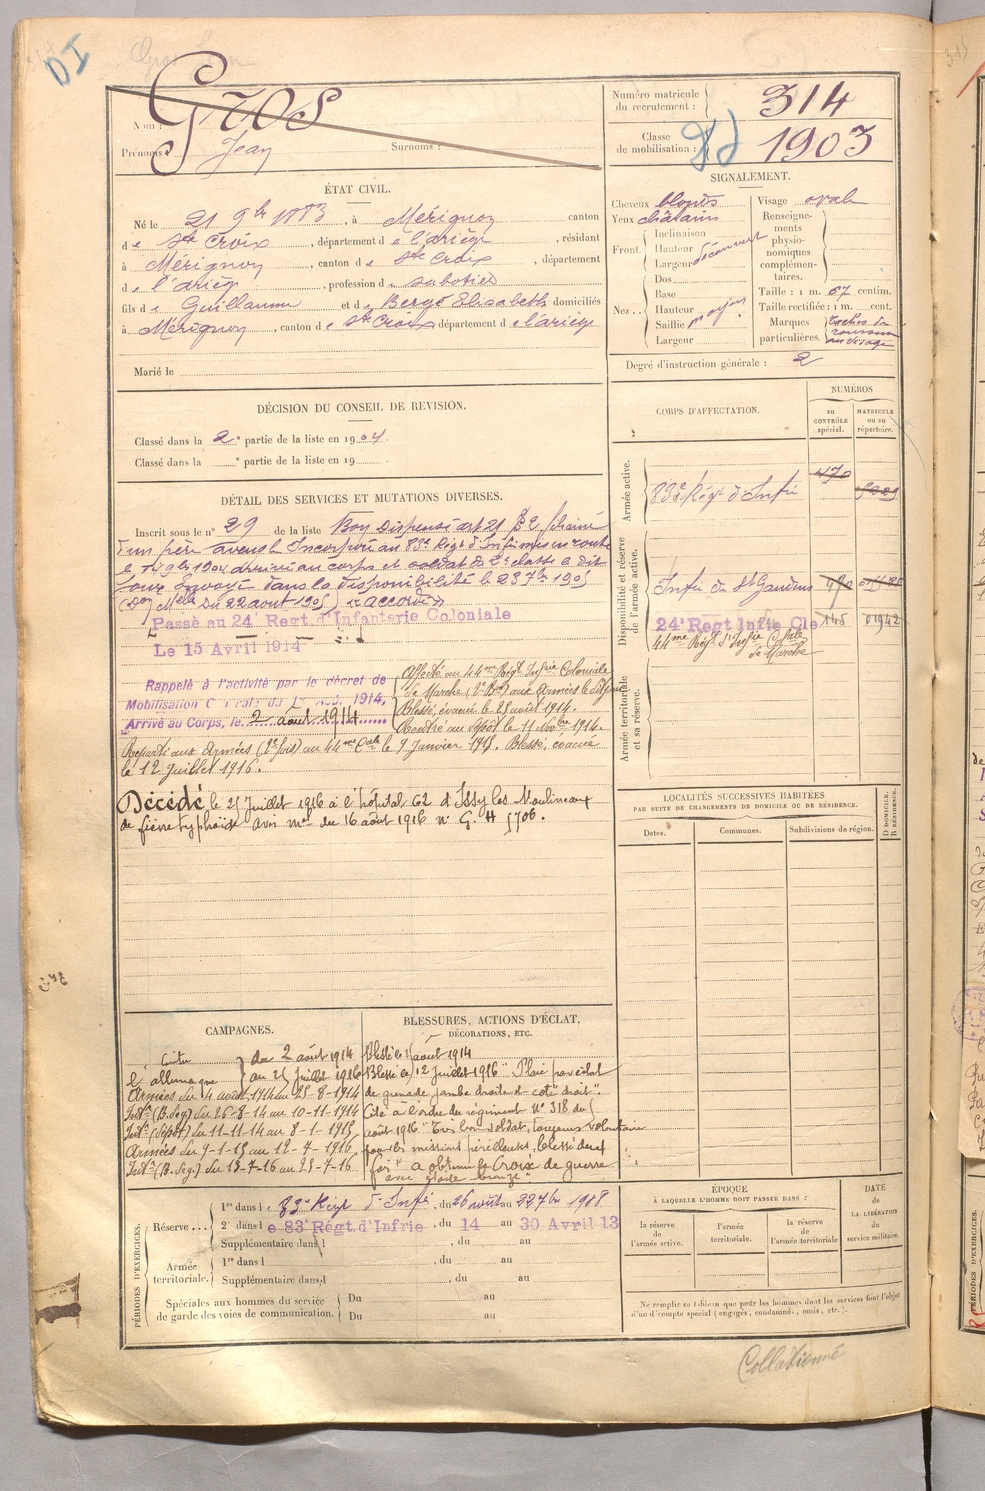 DI
Nom : Gros
Prénoms : Jean Surnoms :
Numéro matricule du recrutement : 314
Classe de mobilisation : 1903
ÉTAT CIVIL.
Né le 21 9bre 1883, à Mérignon canton
de Ste Croix, département de l'ariège, résidant
à Mérignon, canton de Ste Croix, département
de l'ariège, profession de sabotier
fils de Guillaume et de Bergé Elisabeth domiciliés
à Mérignon, canton de Ste Croix département de l'ariège
Marié le
SIGNALEMENT.
Cheveux blonds
Yeux châtains
Front. Inclinaison
Hauteur
Largeur découvert
Nez... Dos
Base
Hauteur
Saillie moyen
Largeur
Visage ovale
Renseignements physionomiques complémentaires.
Taille : 1 m. 67 centim.
Taille rectifiée : 1 m. cent.
Marques particulières. taches de rousseur au visage
Degré d'instruction générale : 2
DÉCISION DU CONSEIL DE REVISION.
Classé dans la 2e partie de la liste en 1904
Classé dans la e partie de la liste en 19
DÉTAIL DES SERVICES ET MUTATIONS DIVERSES.
Inscrit sous le n° 29 de la liste Bon Dispensé art 21 § 2
Incorporé au 83e Régt d'Infie mis en route
le 9bre 1904 arrivé au corps et soldat de 2e classe le dit
jour Envoyé dans la disponibilité le 23 7bre 1905
(Don Mlle du 22 aout 1905) accordé
Passé au 24e Regt d'Infanterie Coloniale
Le 15 Avril 1914
Rappelé à l'activité par le décret de
Mobilisation
Arrivé au Corps, le 2 août 1914
Affecté au 44me Régt Infie Coloniale
de Marche aux Armées le dit jour
Blessé, évacué le 25 août 1914.
Rentré au dépôt le 11 Novbre 1914.
Reparti aux Armées (2e fois) au 44me Cale le 9 Janvier 1915. Blessé, évacué
le 12 Juillet 1916.
Décédé le 25 Juillet 1916 à l'hôpital 62 d'Issy les Moulineaux
de fièvre typhoïde avis mel du 16 août 1916 n° G. H 5706.
CORPS D'AFFECTATION.
NUMÉROS
au CONTRÔLE spécial.
MATRICULE ou au répertoire.
Armée active.
83e Régt d'Infie 470
Disponibilité et réserve de l'armée active.
Infie de St Gaudens
24e Regt Infie Cle 145 01942
44me Régt d'Infie Cole de Marche
Armée territoriale et sa réserve.
LOCALITÉS SUCCESSIVES HABITÉES
PAR SUITE DE CHANGEMENTS DE DOMICILE OU DE RÉSIDENCE.
Dates. Communes. Subdivisions de région. D DOMICILE. R RÉSIDENCE.
CAMPAGNES.
Contre l'allemagne du 2 août 1914 au 25 Juillet 1916
Armées du 4 août 1914 au 25-8-1914
Intr (B. Seg.) du 26-8-14 au 10-11-1914
Intr (dépôt) du 11-11-14 au 8-1-1915
Armées du 9-1-15 au 12-7-1916
Intr (B. Seg.) du 13-7-16 au 25-7-16
BLESSURES, ACTIONS D'ÉCLAT,
DÉCORATIONS, ETC.
Blessé le 25 août 1914
Blessé le 12 juillet 1916 "Plaie par éclat
de grenade jambe droite et coté droit".
Cité à l'ordre du régiment N° 318 du 5
août 1916 "Très bon soldat, toujours volontaire
pour les missions périlleuses, blessé deux
fois" a obtenu la Croix de guerre
avec étoile bronze"
PÉRIODES D'EXERCICES.
Réserve... 1re dans le 83e Regt d'Infie, du 26 août au 22 7bre 1908
2e dans le 83e Régt. d'Infrie, du 14 au 30 Avril 13
Supplémentaire dans l , du au
Armée territoriale. 1re dans l , du au
Supplémentaire dans l , du au
Spéciales aux hommes du service de garde des voies de communication. Du au
Du au
ÉPOQUE
À LAQUELLE L'HOMME DOIT PASSER DANS :
la réserve de l'armée active.
l'armée territoriale.
la réserve de l'armée territoriale
DATE de LA LIBÉRATION du service militaire.
Ne remplir ce tableau que pour les hommes dont les services font l'objet
d'un décompte spécial (engagés, condamnés, omis, etc.).
Collationné